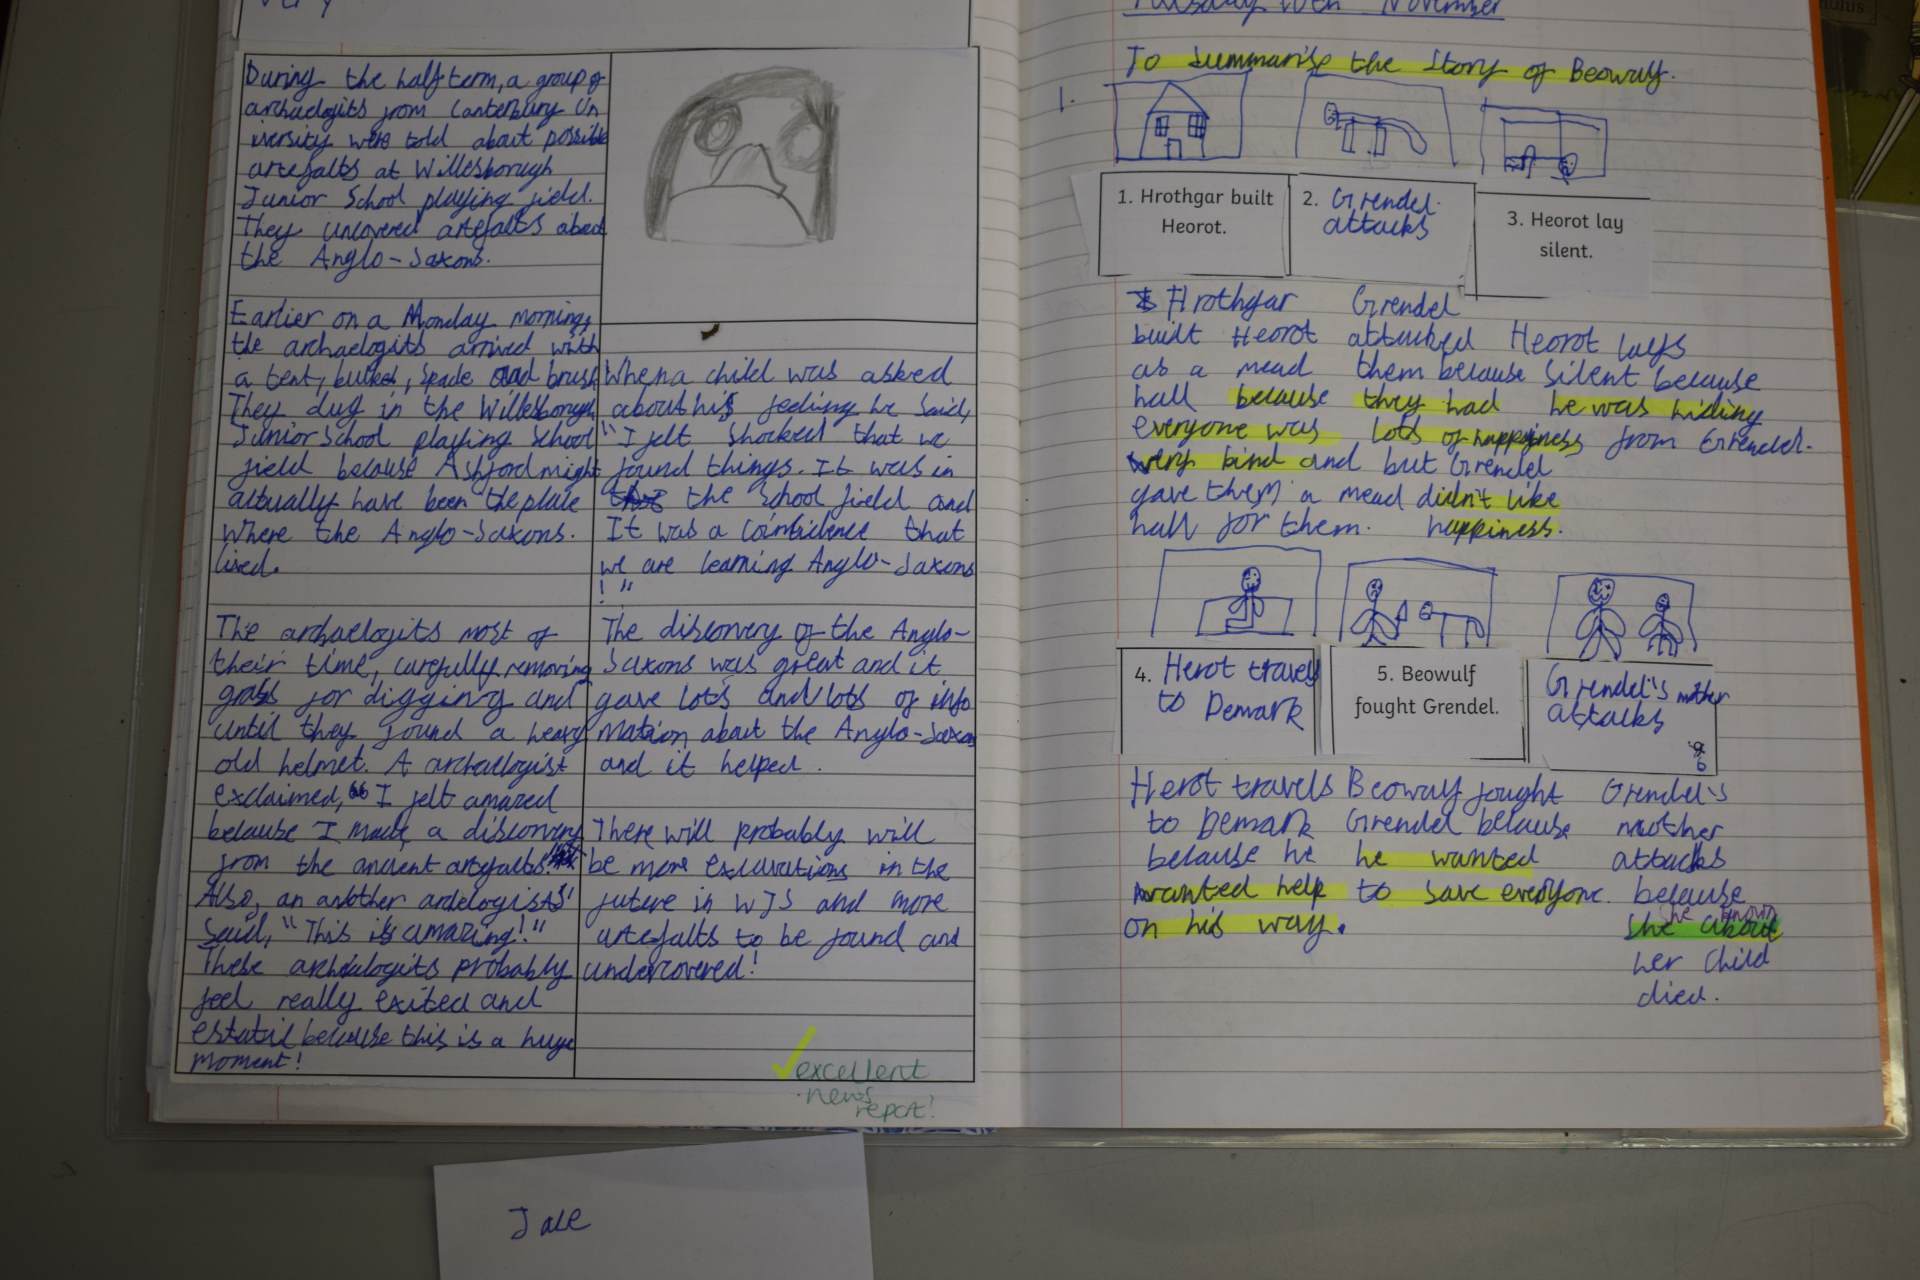 During the half term, a group of
archaelogits from Canterbury Un
iversity were told about possible
artefalts at Willesborough
Junior School playing field.
They uncovered artefalts about
the Anglo-Saxons.
Earlier on a Monday morning,
the archaelogits arrived with
a tent, bucket, spade and brush
They dug in the Willesborough
Junior School playing School
field because Ashford might
actually have been the place
where the Anglo-Saxons.
lived.
The archaelogits most of
their time, carefully removing
grass for digging and
until they found a heavy
old helmet. A archaelogist
exclaimed, "I felt amazed
because I made a discovery
from the ancient artefalts."
Also, an another ardelogists'
said, "This is amazing!"
These archaelogits probably
feel really exited and
estatic because this is a huge
moment!
When a child was asked
about his feeling he said,
"I felt shocked that we
found things. It was in
the School field and
It was a coincidence that
we are learning Anglo-Saxons
!"
The discovery of the Anglo-
Saxons was great and it
gave lots and lots of info
mation about the Anglo-Saxons
and it helped.
There will probably will
be more excavations in the
future in WJS and more
artefalts to be found and
undercovered!
excellent
news
report!
Tuesday 10th November
To summarise the story of Beowulf.
1.
1. Hrothgar built
Heorot.
2. Grendel
attacks
3. Heorot lay
silent.
Hrothgar
built Heorot
as a mead
hall because
everyone was
very kind and
gave them a mead
hall for them.
Grendel
attacked
them because
they had
lots of happiness
but Grendel
didn't like
happiness.
Heorot lays
silent because
he was hiding
from Grendel.
4. Herot travels
to Demark
5. Beowulf
fought Grendel.
Grendel's mother
attacks
6
Herot travels
to Demark
because he
wanted help
on his way.
Beowulf fought
Grendel because
he wanted
to save everyone.
Grendel's
mother
attacks
because
she about
her child
died.
Jace